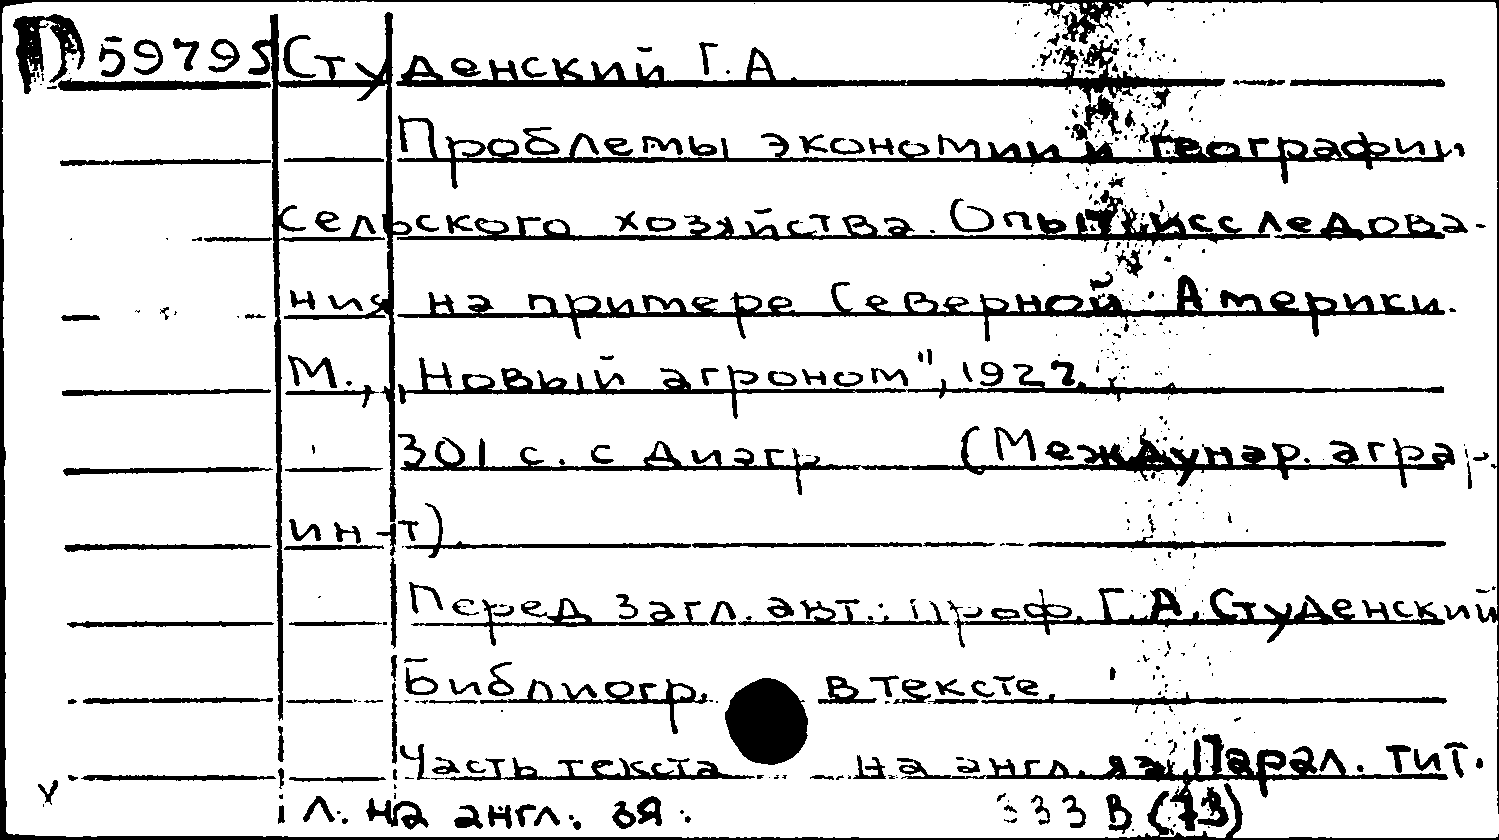 D 59795 Студенский Г. А.
Проблемы экономии и географии
сельского хозяйства. Опыт исследова-
ния на примере Северной Америки.
М., „Новый агроном", 1927.
301 с. с диагр. (Междунар. аграр.
ин-т).
Перед загл. авт.: проф. Г. А. Студенский
Библиогр. в тексте.
Часть текста на англ. яз. Парал. тит.
л. на англ. яз.
333 В (73)